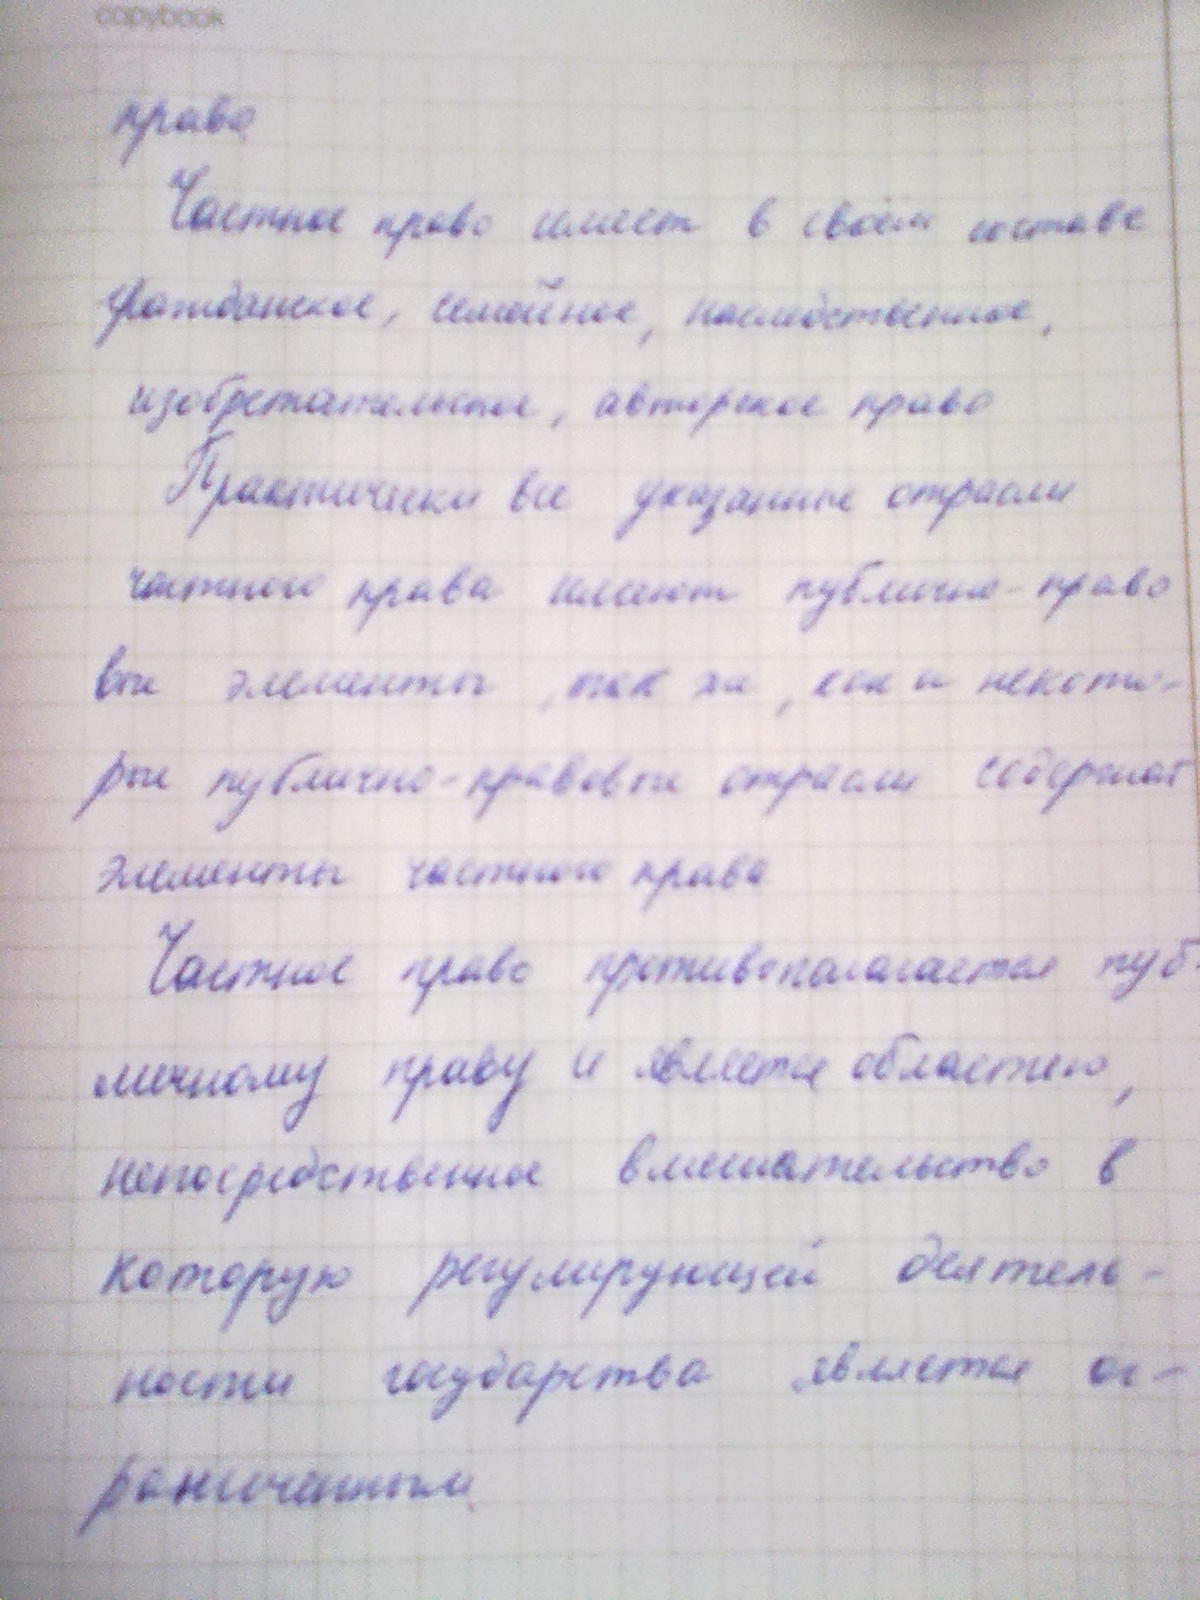 copybook
право
Частное право имеет в своём составе
гражданское, семейное, наследственное,
изобретательское, авторское право
Практически все указанные отрасли
частного права имеют публично-право
вые элементы, так же, как и некото-
рые публично-правовые отрасли содержат
элементы частного права
Частное право противополагается пуб-
личному праву и является областью,
непосредственное вмешательство в
которую регулирующей деятель-
ности государства является ог-
раниченным